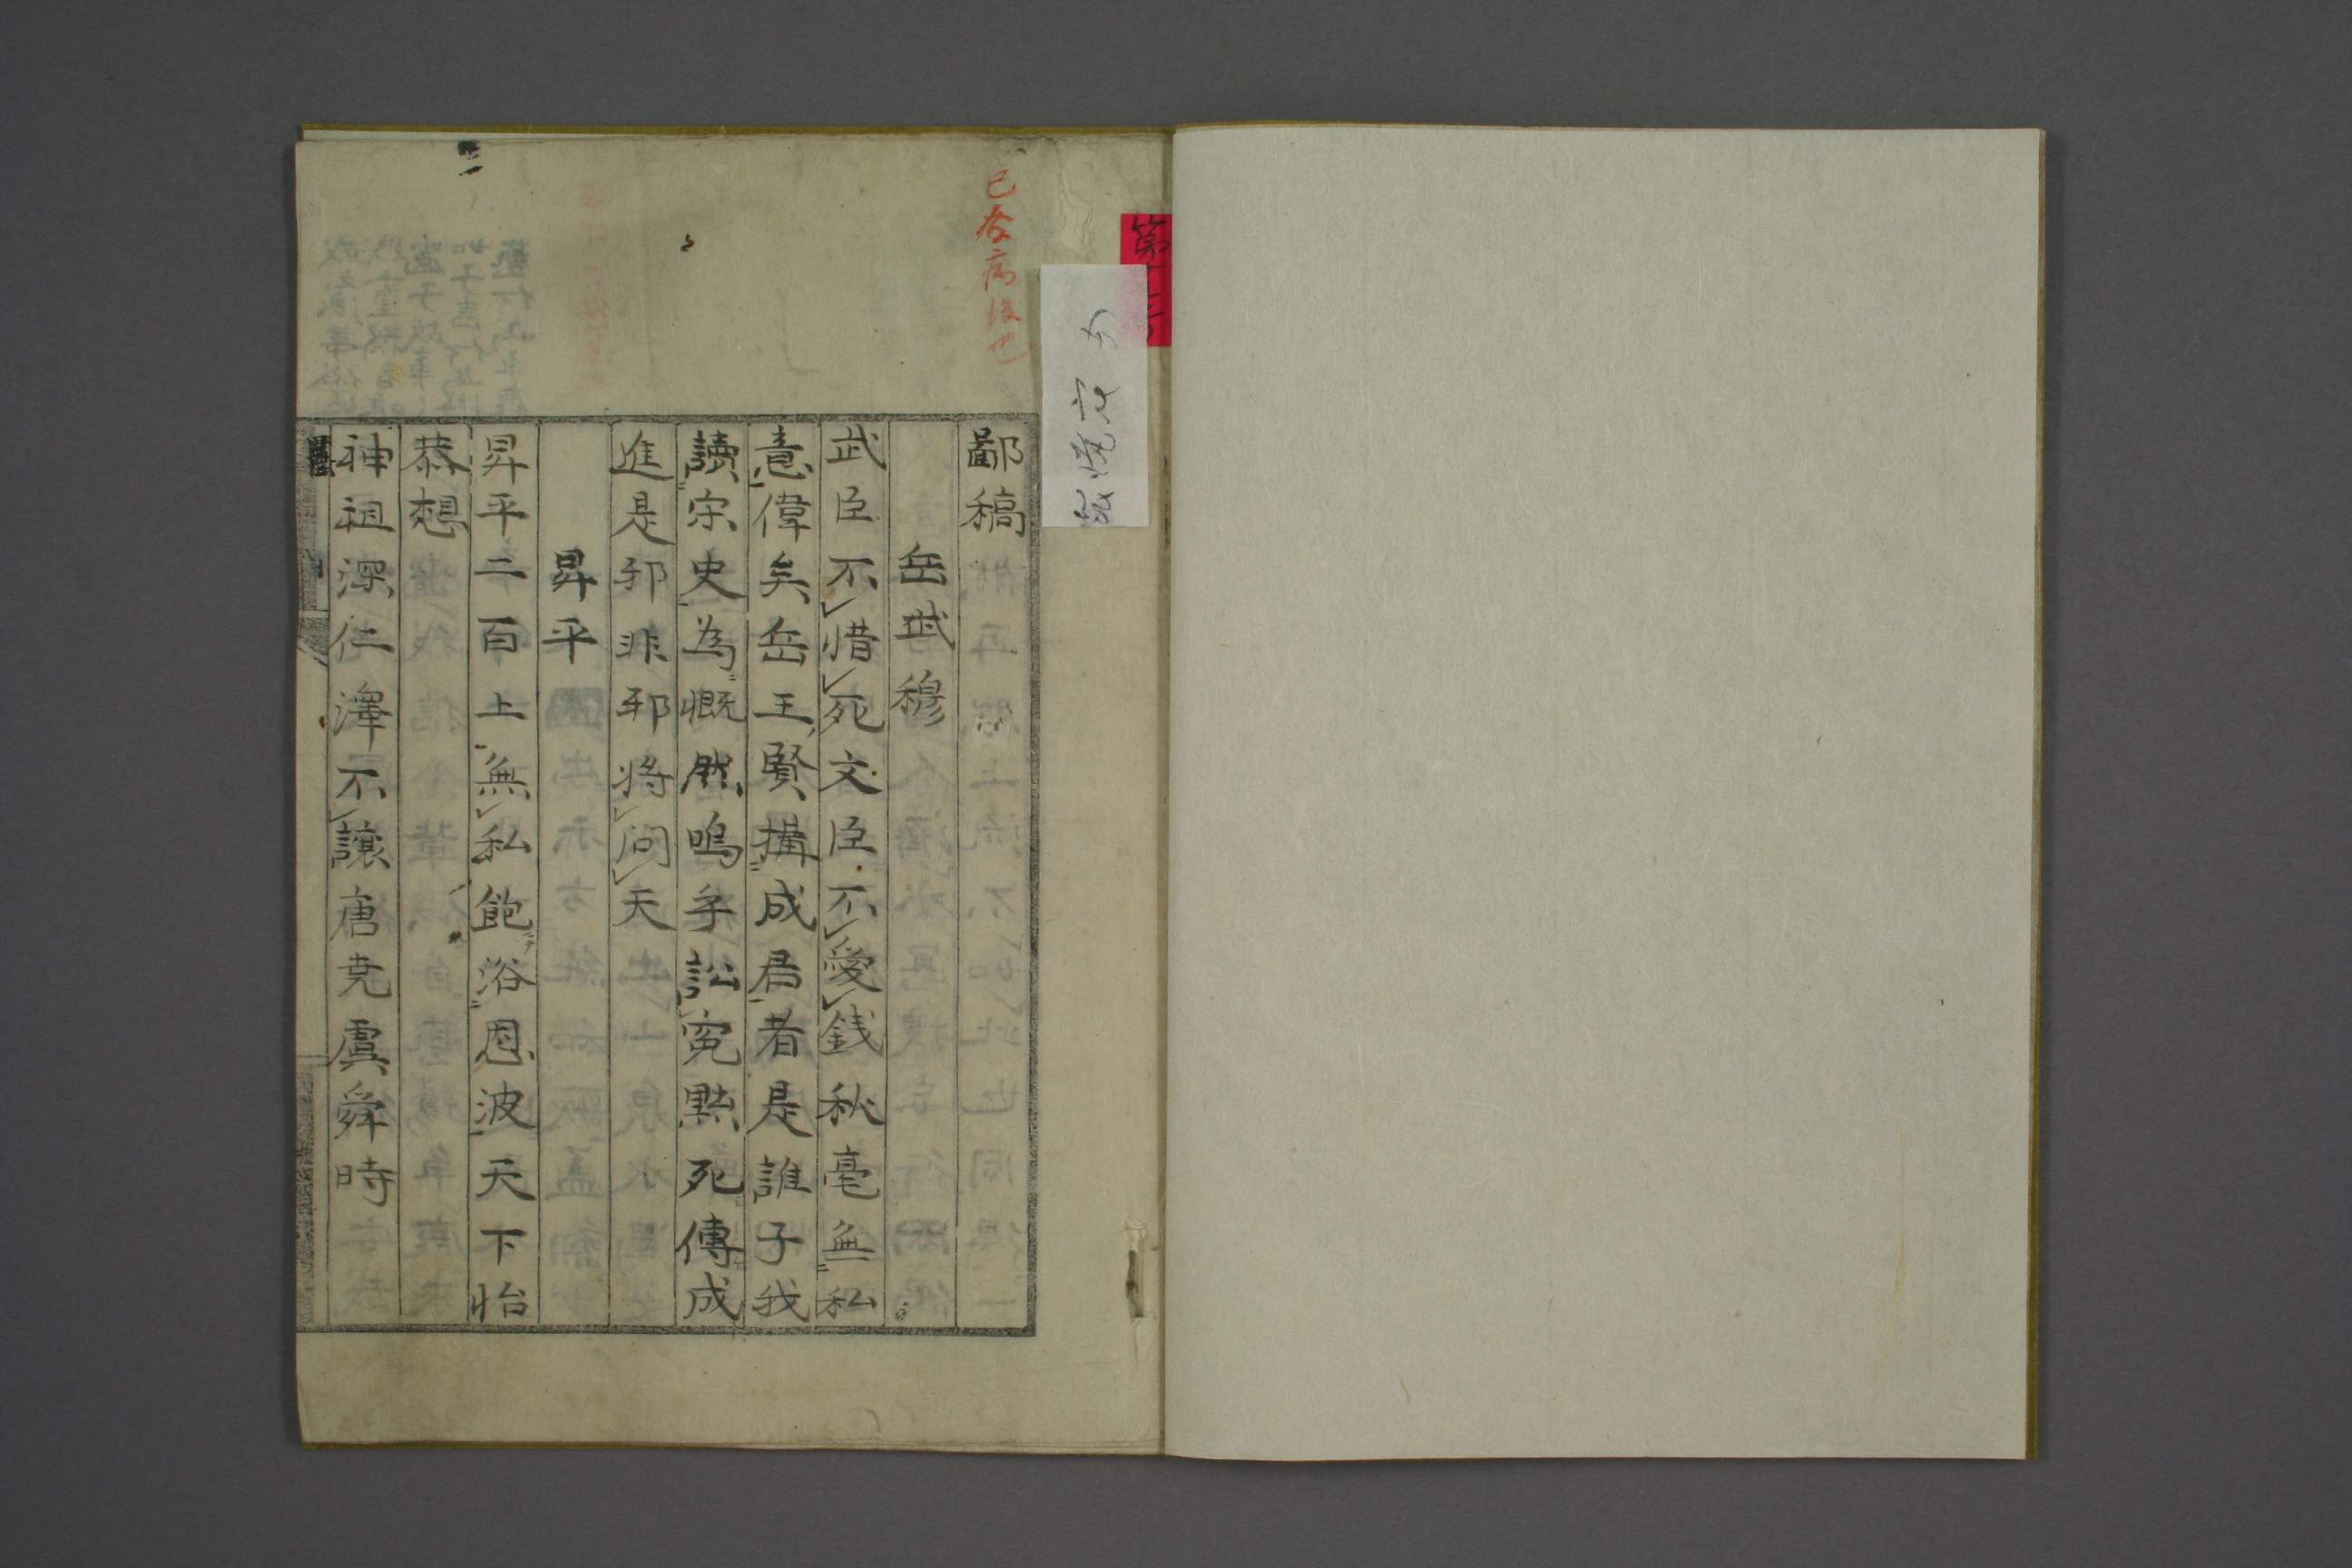 鄙稿
岳武穆
武臣不惜死文臣不愛銭秋毫無私
意偉矣岳王賢搆成君者是誰子我
讀宋史為慨然嗚乎訟寃黙死傳成
進是邪非邪将問天
昇平
昇平二百上無私飽浴恩波天下怡
恭想
神祖深仁澤不譲唐尭虞舜時